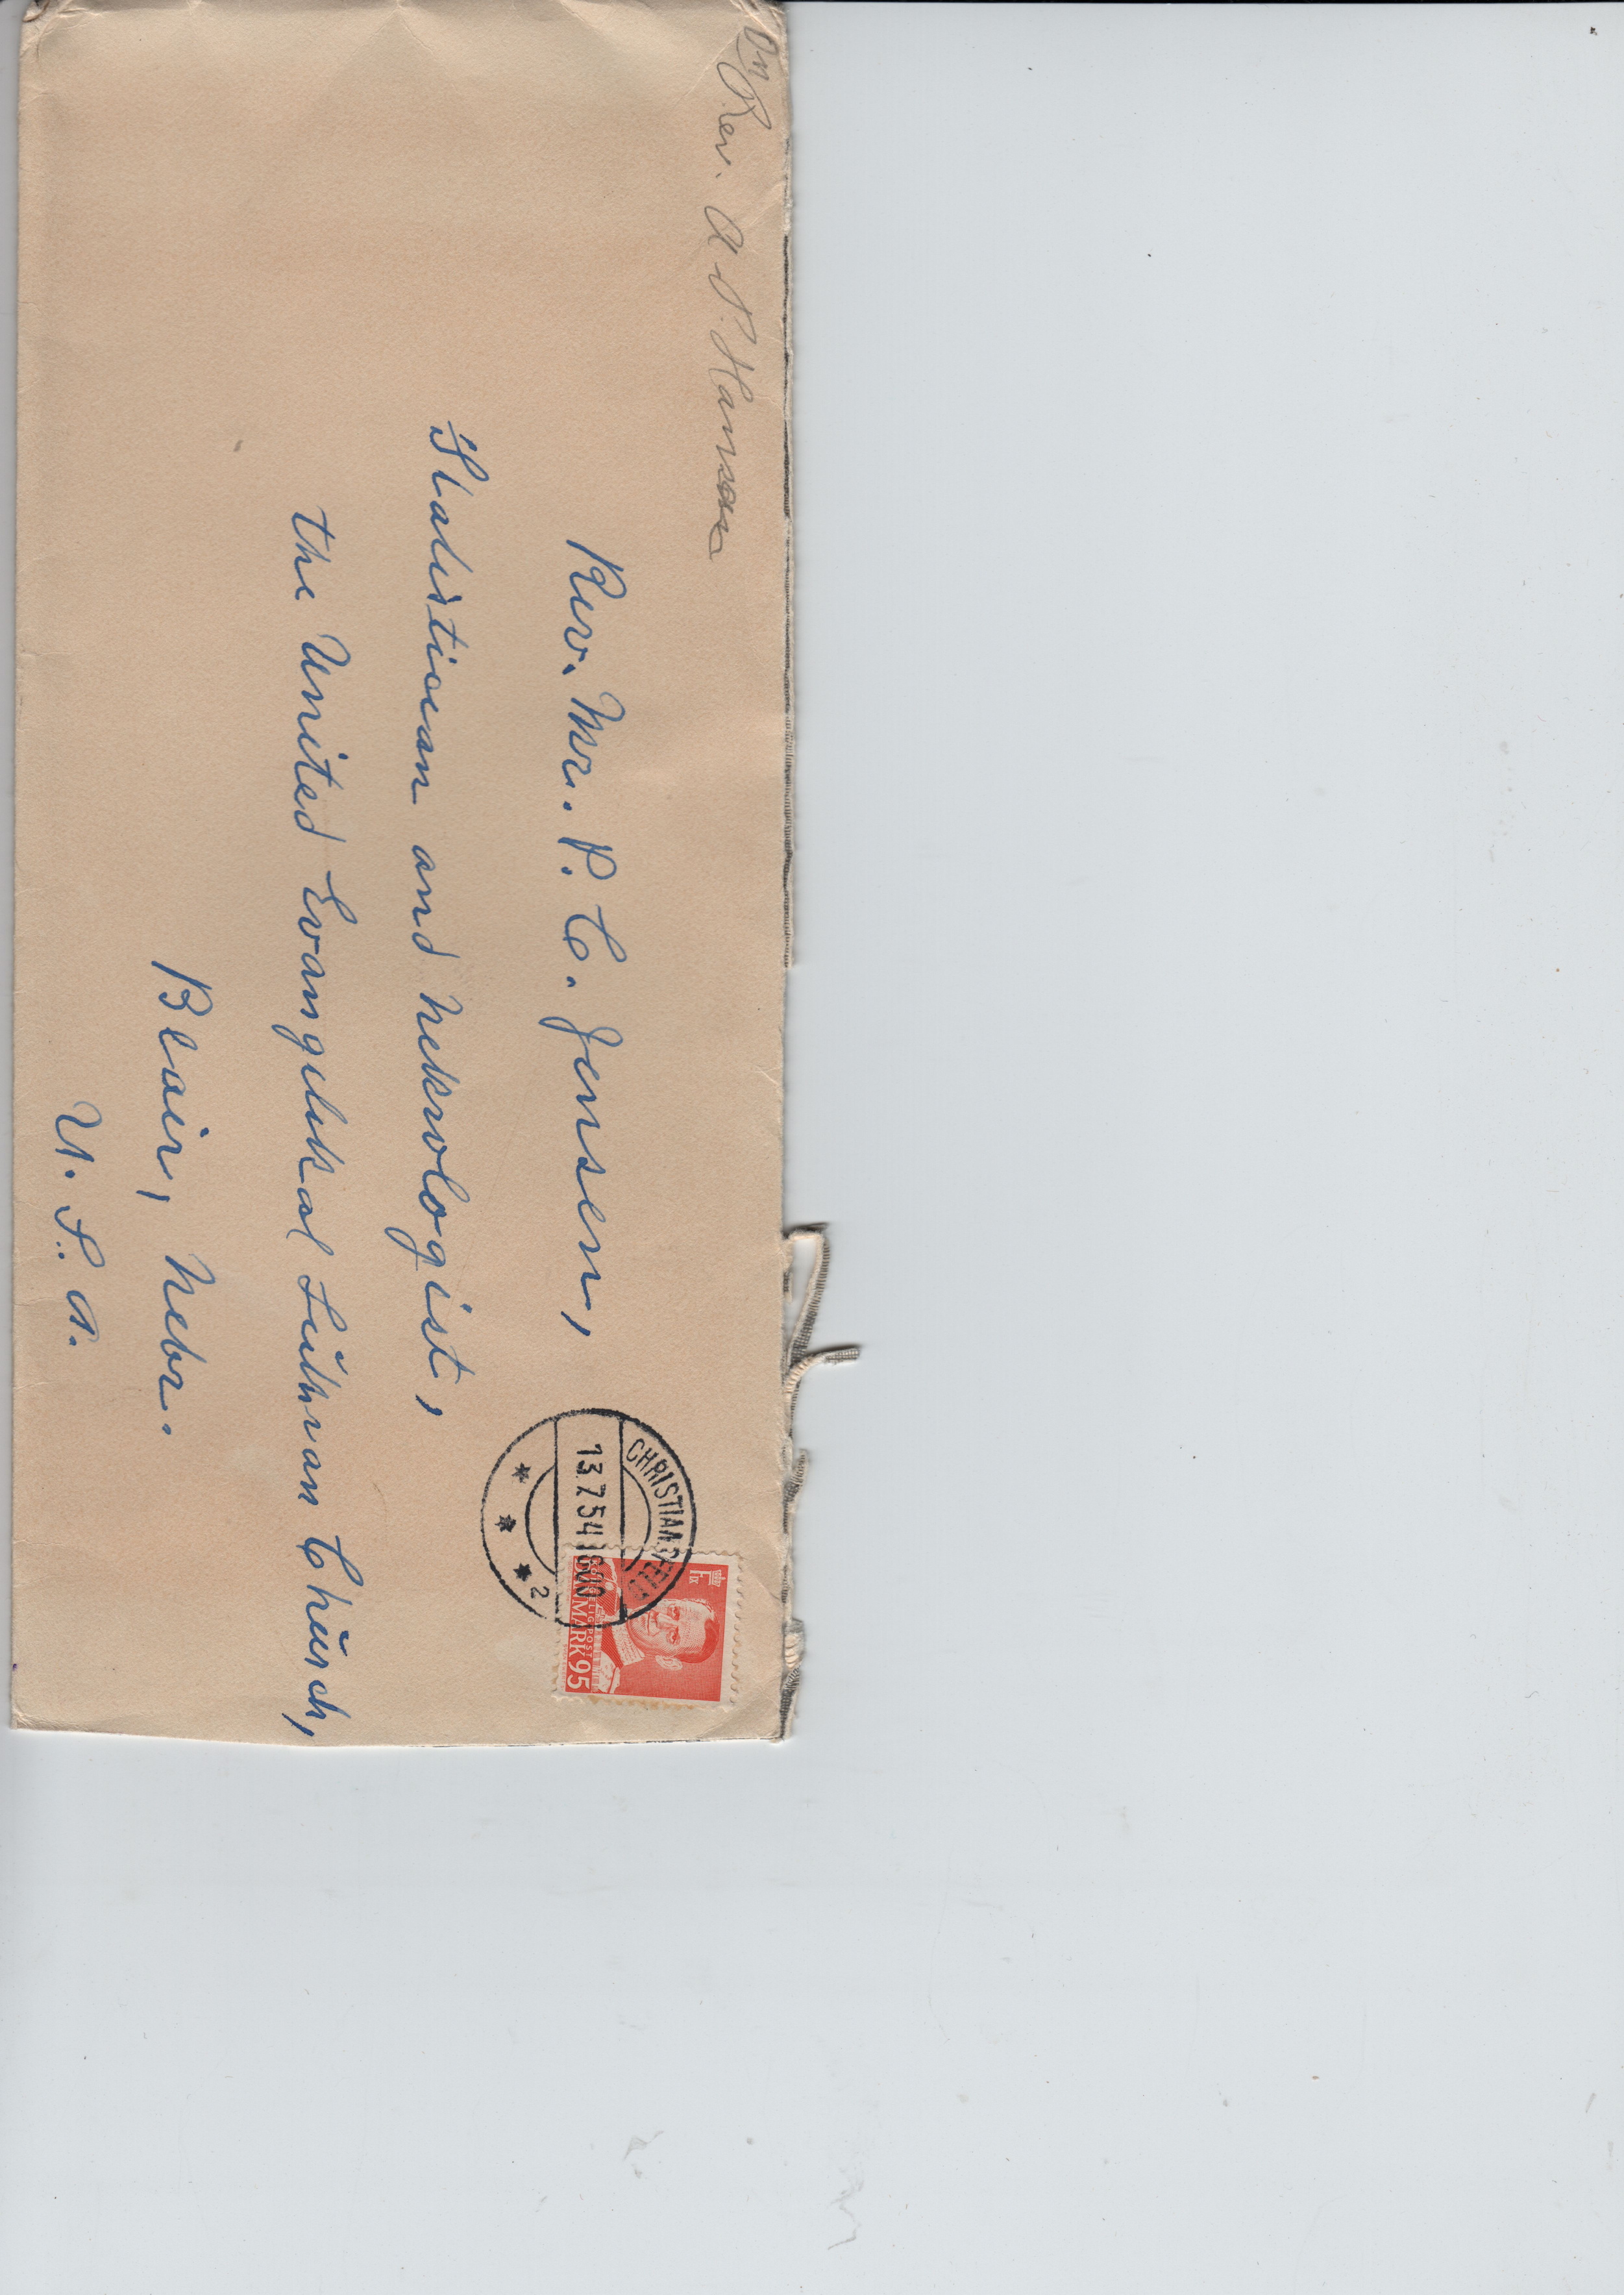 On Rev. A S. Hansen
Rev. Mr. P. C. Jensen,
Statistican and nekrologist,
the United Evangelikal Luthran Church,
Blair, Nebr.
U. S. A.
CHRISTIANSFELD
13.7.54 18.00
2
KONGELIG POST
DANMARK 95